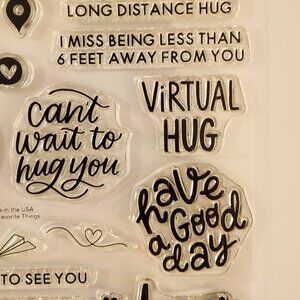 LONG DISTANCE HUG
I MISS BEING LESS THAN
6 FEET AWAY FROM YOU
can't
wait to
hug you
ViRTUAL
HUG
have
a Good
day
in the USA
Favorite Things
TO SEE YOU